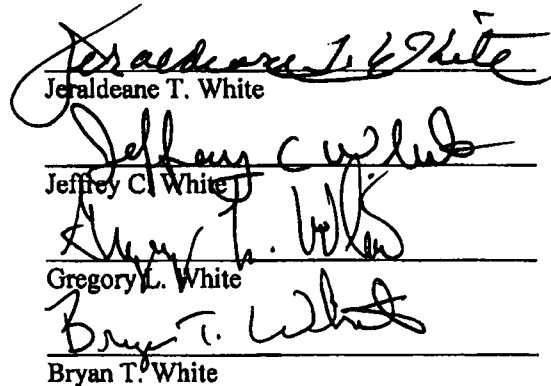 Jeraldeane T. White
Jeraldeane T. White
Jeffrey C White
Jeffrey C. White
Gregory L. White
Gregory L. White
Bryan T. White
Bryan T. White